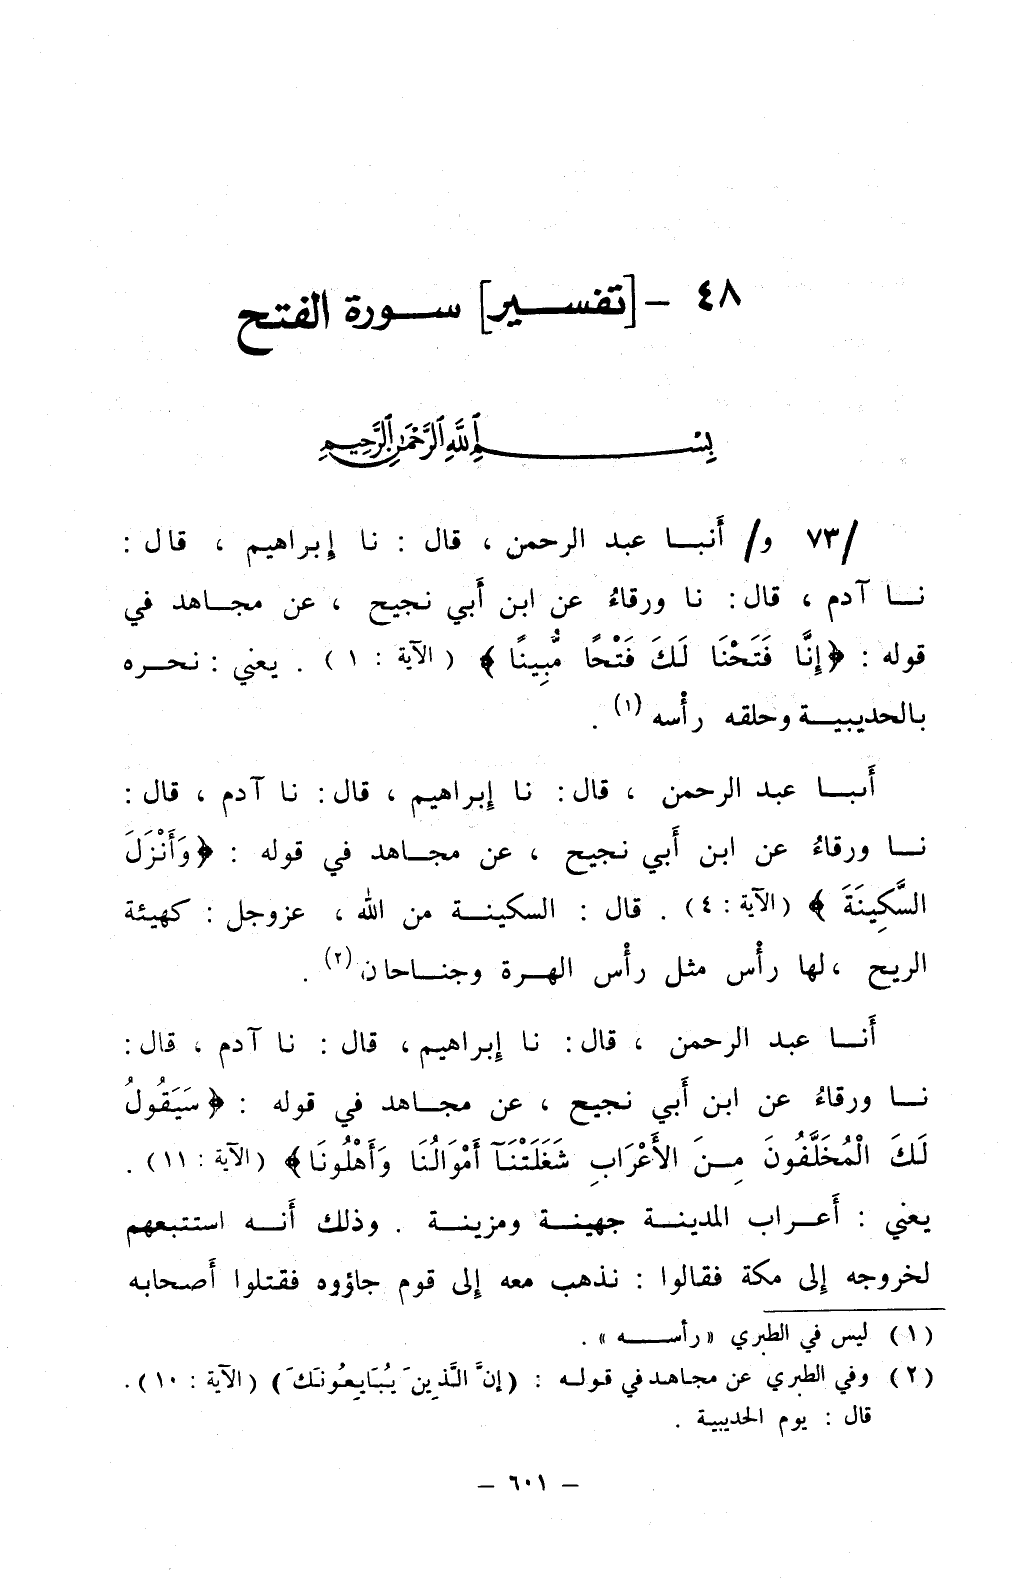 ٤٨ - [تفسير] سورة الفتح
بِسْمِ ٱللَّهِ ٱلرَّحْمَٰنِ ٱلرَّحِيمِ
/٧٣ و/ أَنبا عبد الرحمن ، قال : نا إبراهيم ، قال :
نا آدم ، قال : نا ورقاءُ عن ابن أَبي نجيح ، عن مجاهد في
قوله : ﴿إِنَّا فَتَحْنَا لَكَ فَتْحًا مُّبِينًا ﴾ ( الآية : ١ ) . يعني : نحره
بالحديبية وحلقه رأْسه (١) .
أَنبا عبد الرحمن ، قال : نا إبراهيم ، قال : نا آدم ، قال :
نا ورقاءُ عن ابن أَبي نجيح ، عن مجاهد في قوله : ﴿وَأَنْزَلَ
السَّكِينَةَ ﴾ (الآية : ٤) . قال : السكينة من الله ، عزوجل : كهيئة
الريح ، لها رأْس مثل رأْس الهرة وجناحان (٢) .
أَنا عبد الرحمن ، قال : نا إبراهيم ، قال : نا آدم ، قال :
نا ورقاءُ عن ابن أَبي نجيح ، عن مجاهد في قوله : ﴿سَيَقُولُ
لَكَ الْمُخَلَّفُونَ مِنَ الأَعْرَابِ شَغَلَتْنَآ أَمْوَالُنَا وَأَهْلُونَا﴾ (الآية : ١١) .
يعني : أَعراب المدينة جهينة ومزينة . وذلك أَنه استتبعهم
لخروجه إلى مكة فقالوا : نذهب معه إلى قوم جاؤوه فقتلوا أَصحابه
(١) ليس في الطبري « رأسه » .
(٢) وفي الطبري عن مجاهد في قوله : (إنَّ الَّذِينَ يُبَايِعُونَكَ) (الآية : ١٠) .
قال : يوم الحديبية .
- ٦٠١ -